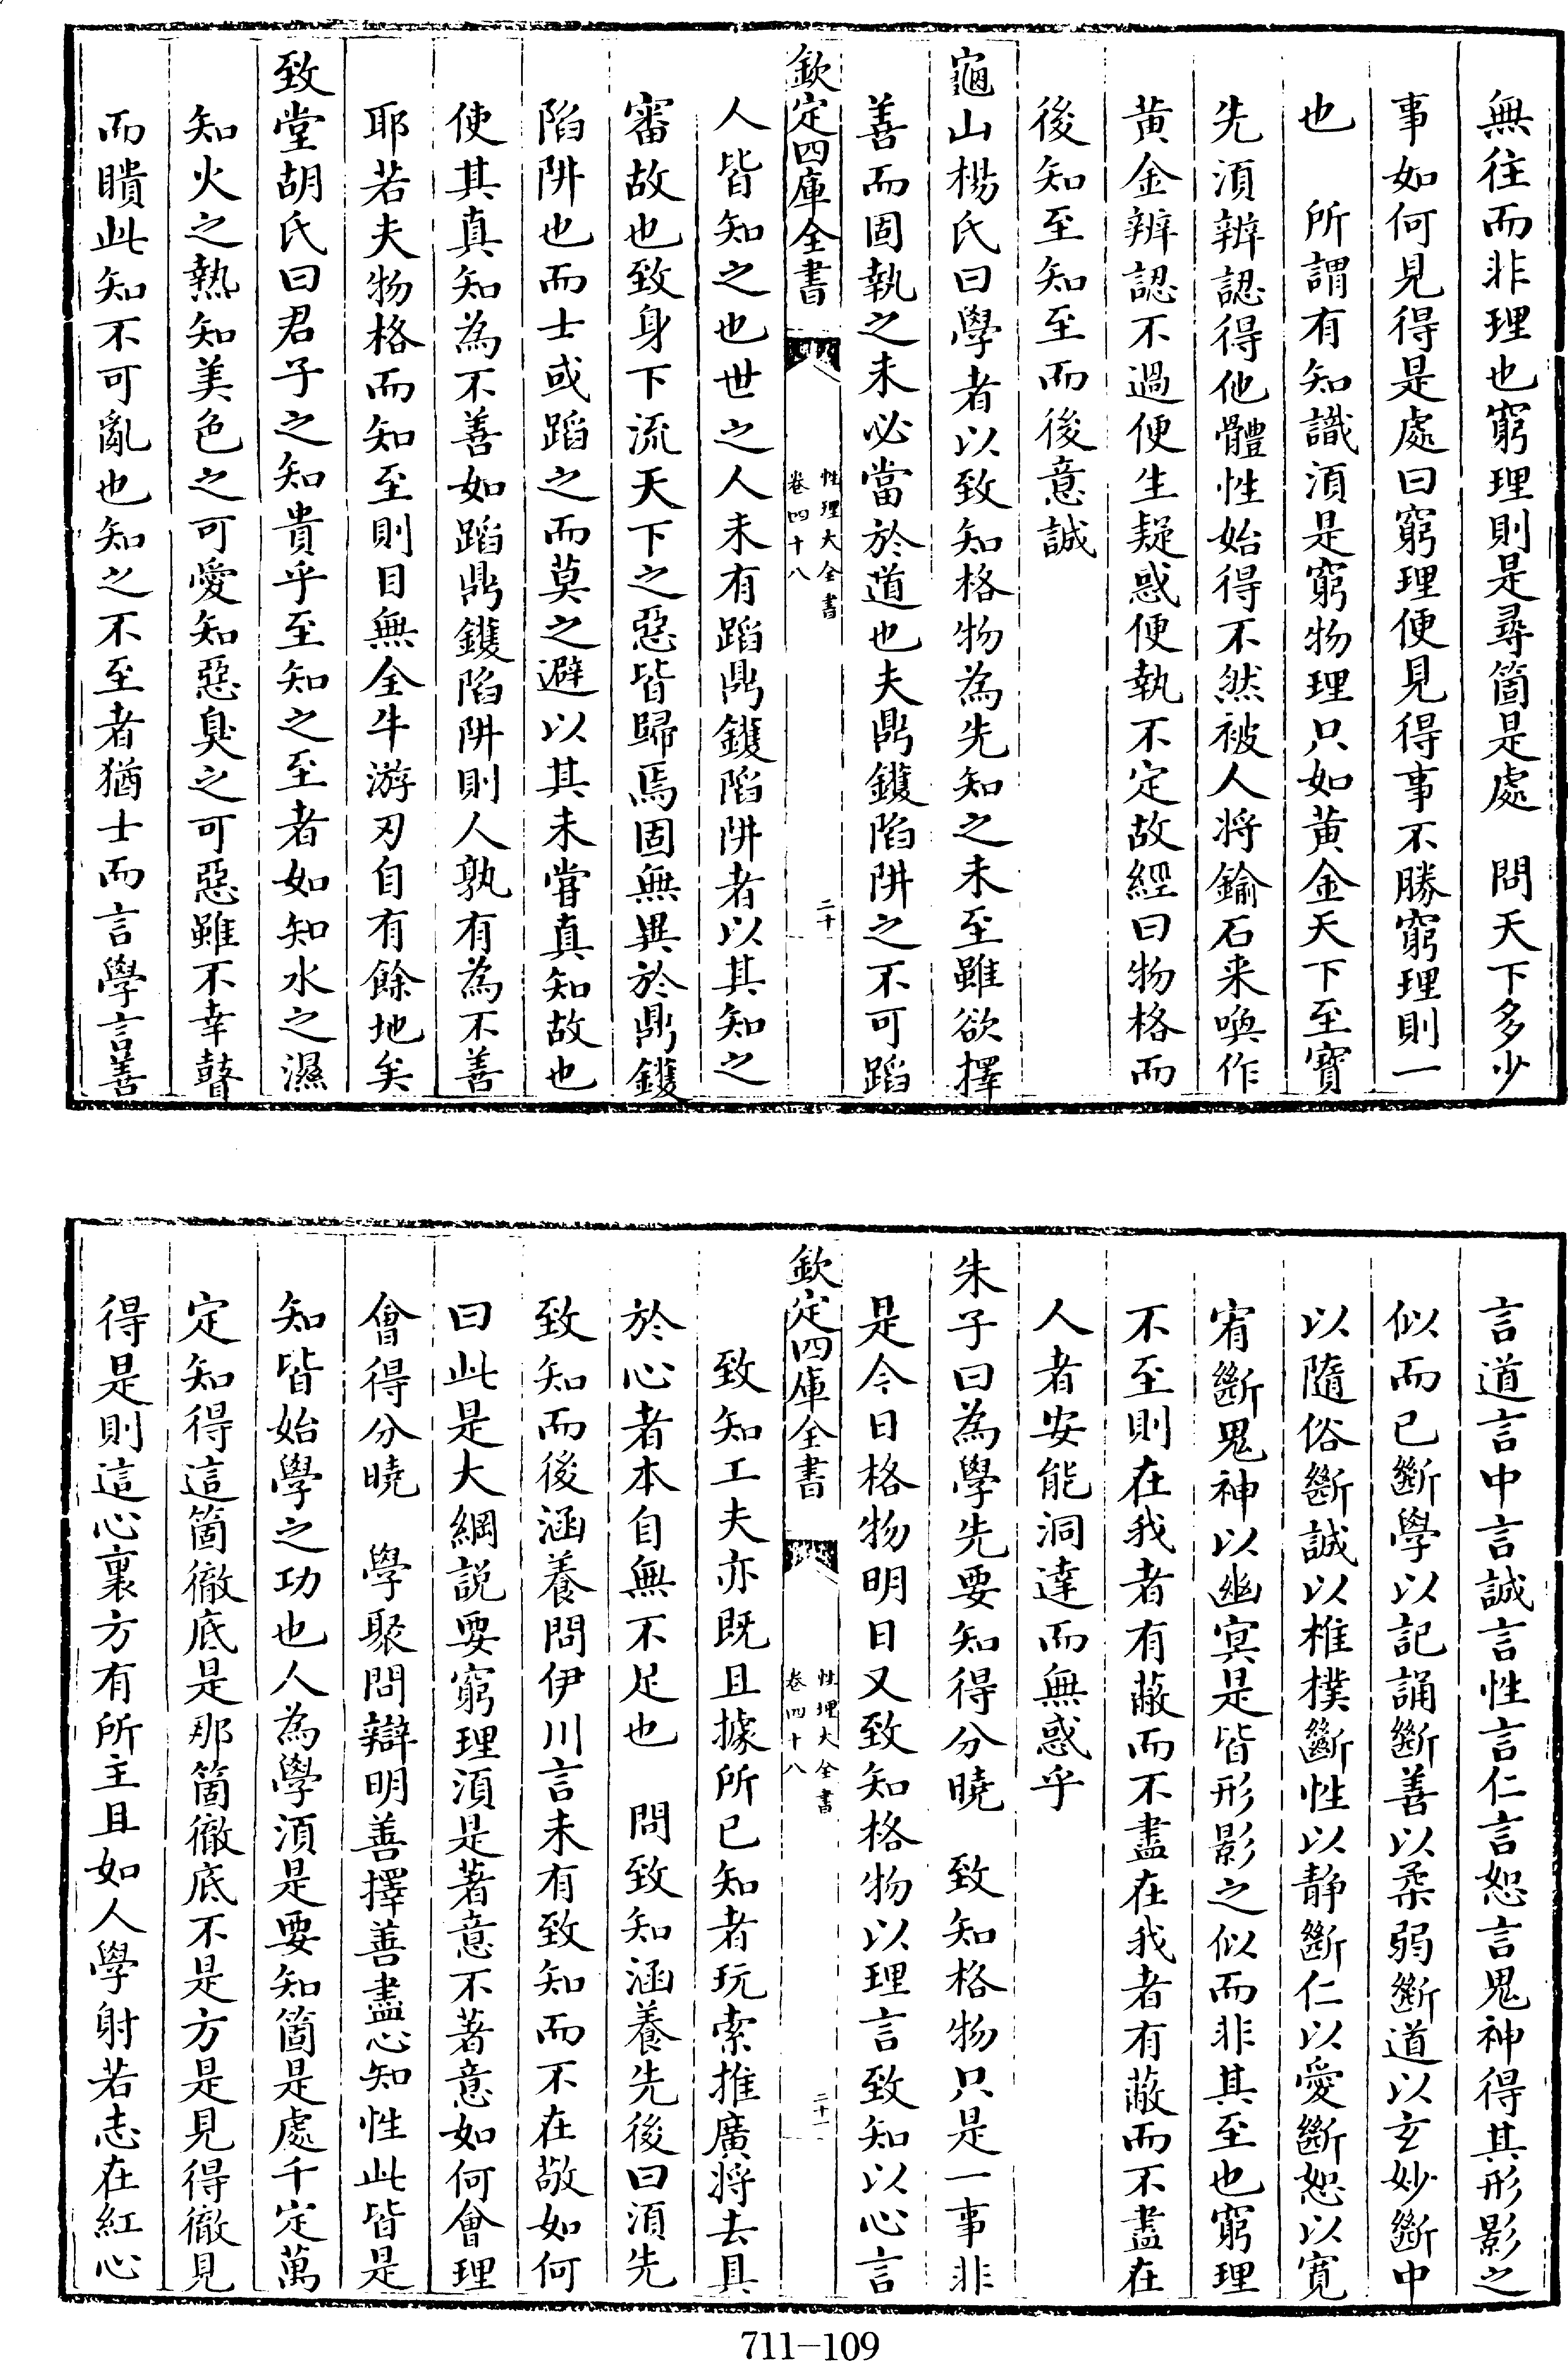 無往而非理也窮理則是尋箇是處　問天下多少
事如何見得是處曰窮理便見得事不勝窮理則一
也　所謂有知識須是窮物理只如黄金天下至寶
先須辨認得他體性始得不然被人將鍮石来喚作
黄金辨認不過便生疑惑便執不定故經曰物格而
後知至知至而後意誠
龜山楊氏曰學者以致知格物為先知之未至雖欲擇
善而固執之未必當於道也夫鼎鑊陷阱之不可蹈
欽定四庫全書
性理大全書
卷四十八
二十
人皆知之也世之人未有蹈鼎鑊陷阱者以其知之
審故也致身下流天下之惡皆歸焉固無異於鼎鑊
陷阱也而士或蹈之而莫之避以其未嘗真知故也
使其真知為不善如蹈鼎鑊陷阱則人孰有為不善
耶若夫物格而知至則目無全牛游刃自有餘地矣
致堂胡氏曰君子之知貴乎至知之至者如知水之濕
知火之熱知美色之可愛知惡臭之可惡雖不幸瞽
而瞶此知不可亂也知之不至者猶士而言學言善
言道言中言誠言性言仁言恕言鬼神得其形影之
似而已斷學以記誦斷善以柔弱斷道以玄妙斷中
以隨俗斷誠以椎樸斷性以静斷仁以愛斷恕以寛
宥斷鬼神以幽冥是皆形影之似而非其至也窮理
不至則在我者有蔽而不盡在我者有蔽而不盡在
人者安能洞達而無惑乎
朱子曰為學先要知得分曉　致知格物只是一事非
是今日格物明日又致知格物以理言致知以心言
欽定四庫全書
性理大全書
卷四十八
二十一
致知工夫亦既且據所已知者玩索推廣將去具
於心者本自無不足也　問致知涵養先後曰須先
致知而後涵養問伊川言未有致知而不在敬如何
曰此是大綱説要窮理須是著意不著意如何會理
會得分曉　學聚問辯明善擇善盡心知性此皆是
知皆始學之功也人為學須是要知箇是處千定萬
定知得這箇徹底是那箇徹底不是方是見得徹見
得是則這心裏方有所主且如人學射若志在紅心
711—109